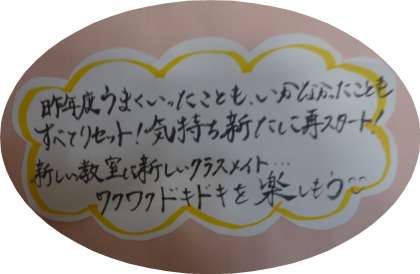 昨年度うまくいったことも、いかなかったことも
すべてリセット!気持ち新たに再スタート!
新しい教室に新しいクラスメイト…
ワクワクドキドキを楽しもう